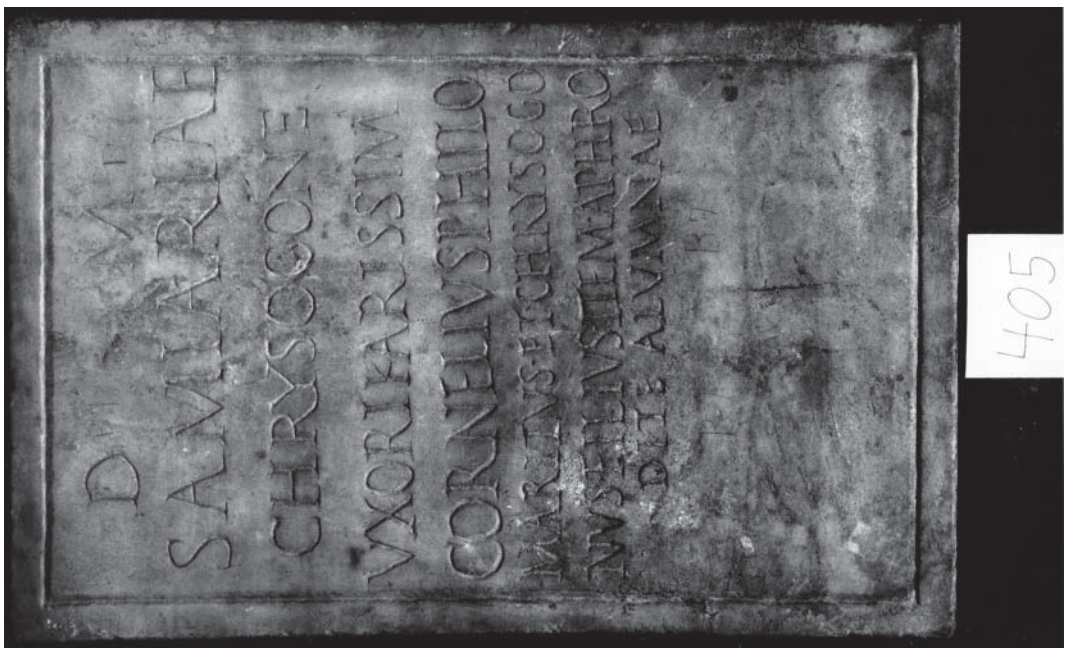 D M
SAMIARIAE
CHRYSOGONE
VXORI KARISSIM
CORNELIVS PHILO
MARITVS ET CHRYSOGO
NVS FILIVS ITEM APHRO
DITE ALVMNAE
405